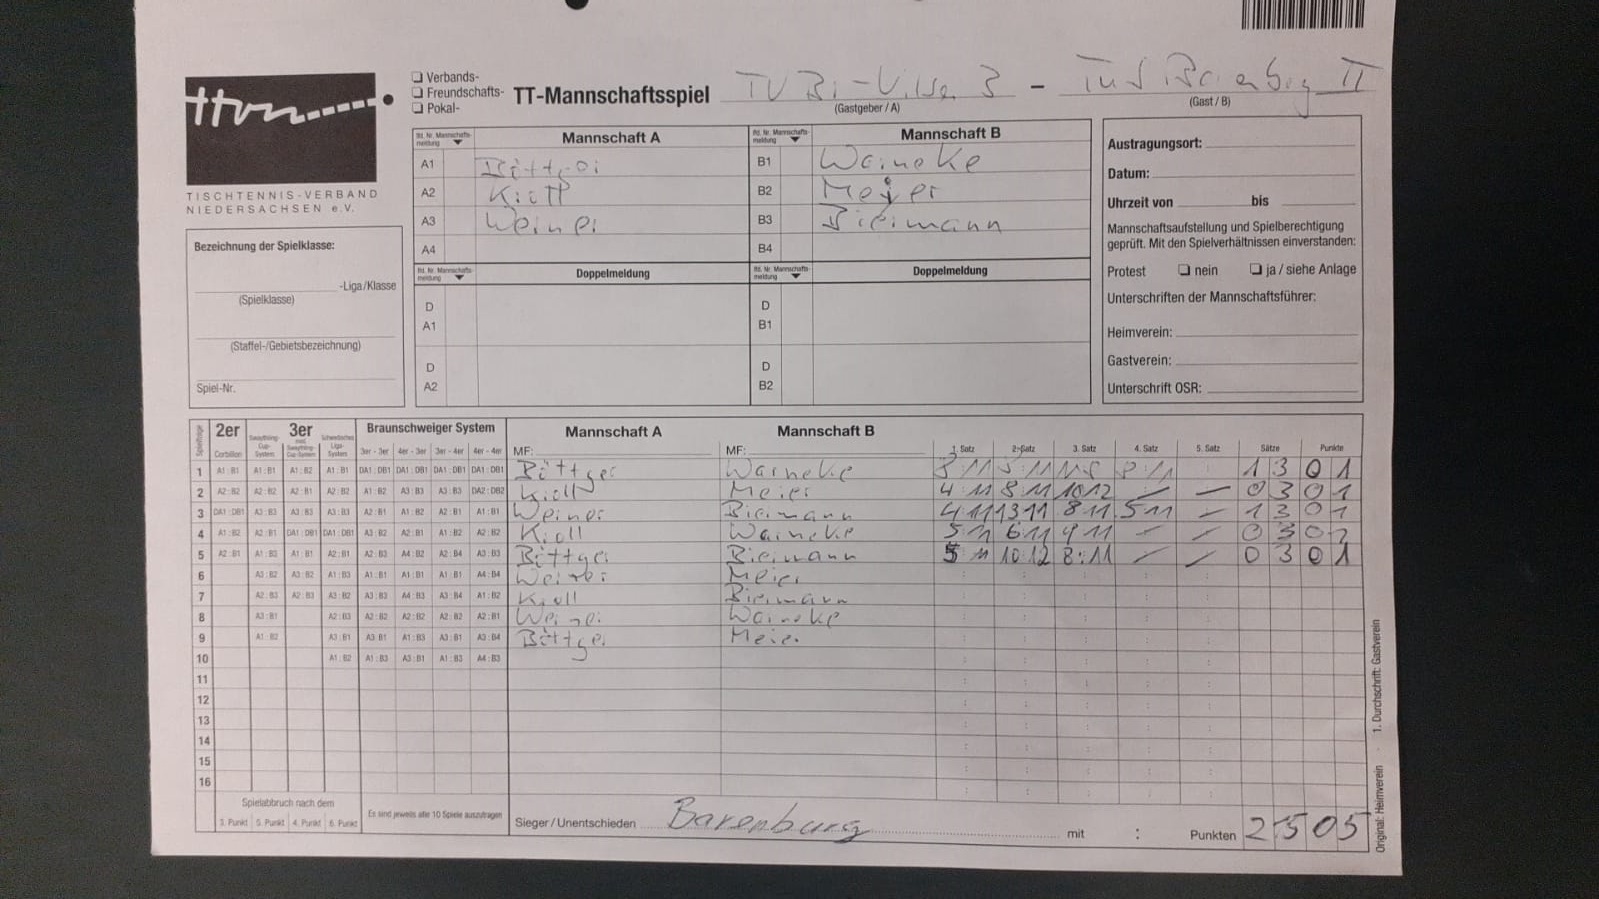 ttvn
TISCHTENNIS-VERBAND
NIEDERSACHSEN e.V.
Verbands-
Freundschafts-
Pokal-
TT-Mannschaftsspiel
TV Br-Vilsen 3 - TuS Barenburg II
(Gastgeber / A) (Gast / B)
Mannschaft A Mannschaft B
A1 Böttger B1 Warneke
A2 Kroll B2 Meyer
A3 Werner B3 Biermann
A4 B4
Doppelmeldung Doppelmeldung
D A1 D B1
D A2 D B2
Bezeichnung der Spielklasse:
-Liga/Klasse
(Spielklasse)
(Staffel-/Gebietsbezeichnung)
Spiel-Nr.
Austragungsort:
Datum:
Uhrzeit von bis
Mannschaftsaufstellung und Spielberechtigung
geprüft. Mit den Spielverhältnissen einverstanden:
Protest nein ja / siehe Anlage
Unterschriften der Mannschaftsführer:
Heimverein:
Gastverein:
Unterschrift OSR:
2er 3er Braunschweiger System Mannschaft A Mannschaft B
3er - 3er 4er - 3er 3er - 4er 4er - 4er MF: MF: 1. Satz 2. Satz 3. Satz 4. Satz 5. Satz Sätze Punkte
1 A1 : B1 A1 : B1 A1 : B2 A1 : B1 DA1 : DB1 DA1 : DB1 DA1 : DB1 DA1 : DB1 Böttger Warneke 1 3 0 1
2 A2 : B2 A2 : B2 A2 : B1 A2 : B2 A1 : B2 A3 : B3 A3 : B3 DA2 : DB2 Kroll Meier 4 11 8 11 10 12 – – 0 3 0 1
3 DA1 : DB1 A3 : B3 A3 : B3 A3 : B3 A2 : B1 A1 : B2 A2 : B1 A1 : B1 Werner Biermann 4 11 13 11 8 11 5 11 – 1 3 0 1
4 A1 : B2 A2 : B1 DA1 : DB1 DA1 : DB1 A3 : B2 A2 : B1 A1 : B2 A2 : B2 Kroll Warneke 5 11 6 11 9 11 – – 0 3 0
5 A2 : B1 A1 : B3 A1 : B1 A2 : B1 A2 : B3 A4 : B2 A2 : B4 A3 : B3 Böttger Biermann 5 11 10 12 8 : 11 – – 0 3 0 1
6 A3 : B2 A3 : B2 A1 : B3 A1 : B1 A1 : B1 A1 : B1 A4 : B4 Werner Meier
7 A2 : B3 A2 : B3 A3 : B2 A3 : B3 A4 : B3 A3 : B4 A1 : B2 Kroll Biermann
8 A3 : B1 A2 : B3 A2 : B2 A2 : B2 A2 : B2 A2 : B1 Werner Warneke
9 A1 : B2 A3 : B1 A3 : B1 A1 : B3 A3 : B1 A3 : B4 Böttger Meier
10 A1 : B2 A1 : B3 A3 : B1 A1 : B3 A4 : B3
11
12
13
14
15
16
Spielabbruch nach dem
3. Punkt 5. Punkt 4. Punkt 6. Punkt
Es sind jeweils alle 10 Spiele auszutragen
Sieger / Unentschieden Barenburg mit : Punkten 2 15 0 5
Original: Heimverein · 1. Durchschrift: Gastverein